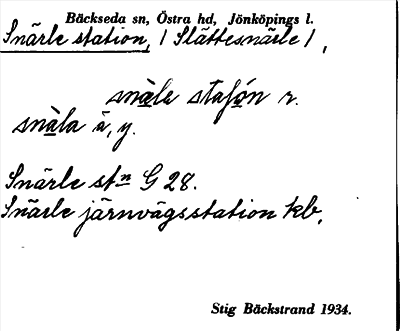 Bäckseda sn, Östra hd, Jönköpings l.
Snärle station, / Slättesnärle /,
snäle stašón r.
snäla ä, y.
Snärle stn G 28.
Snärle järnvägsstation kb.
Stig Bäckstrand 1934.